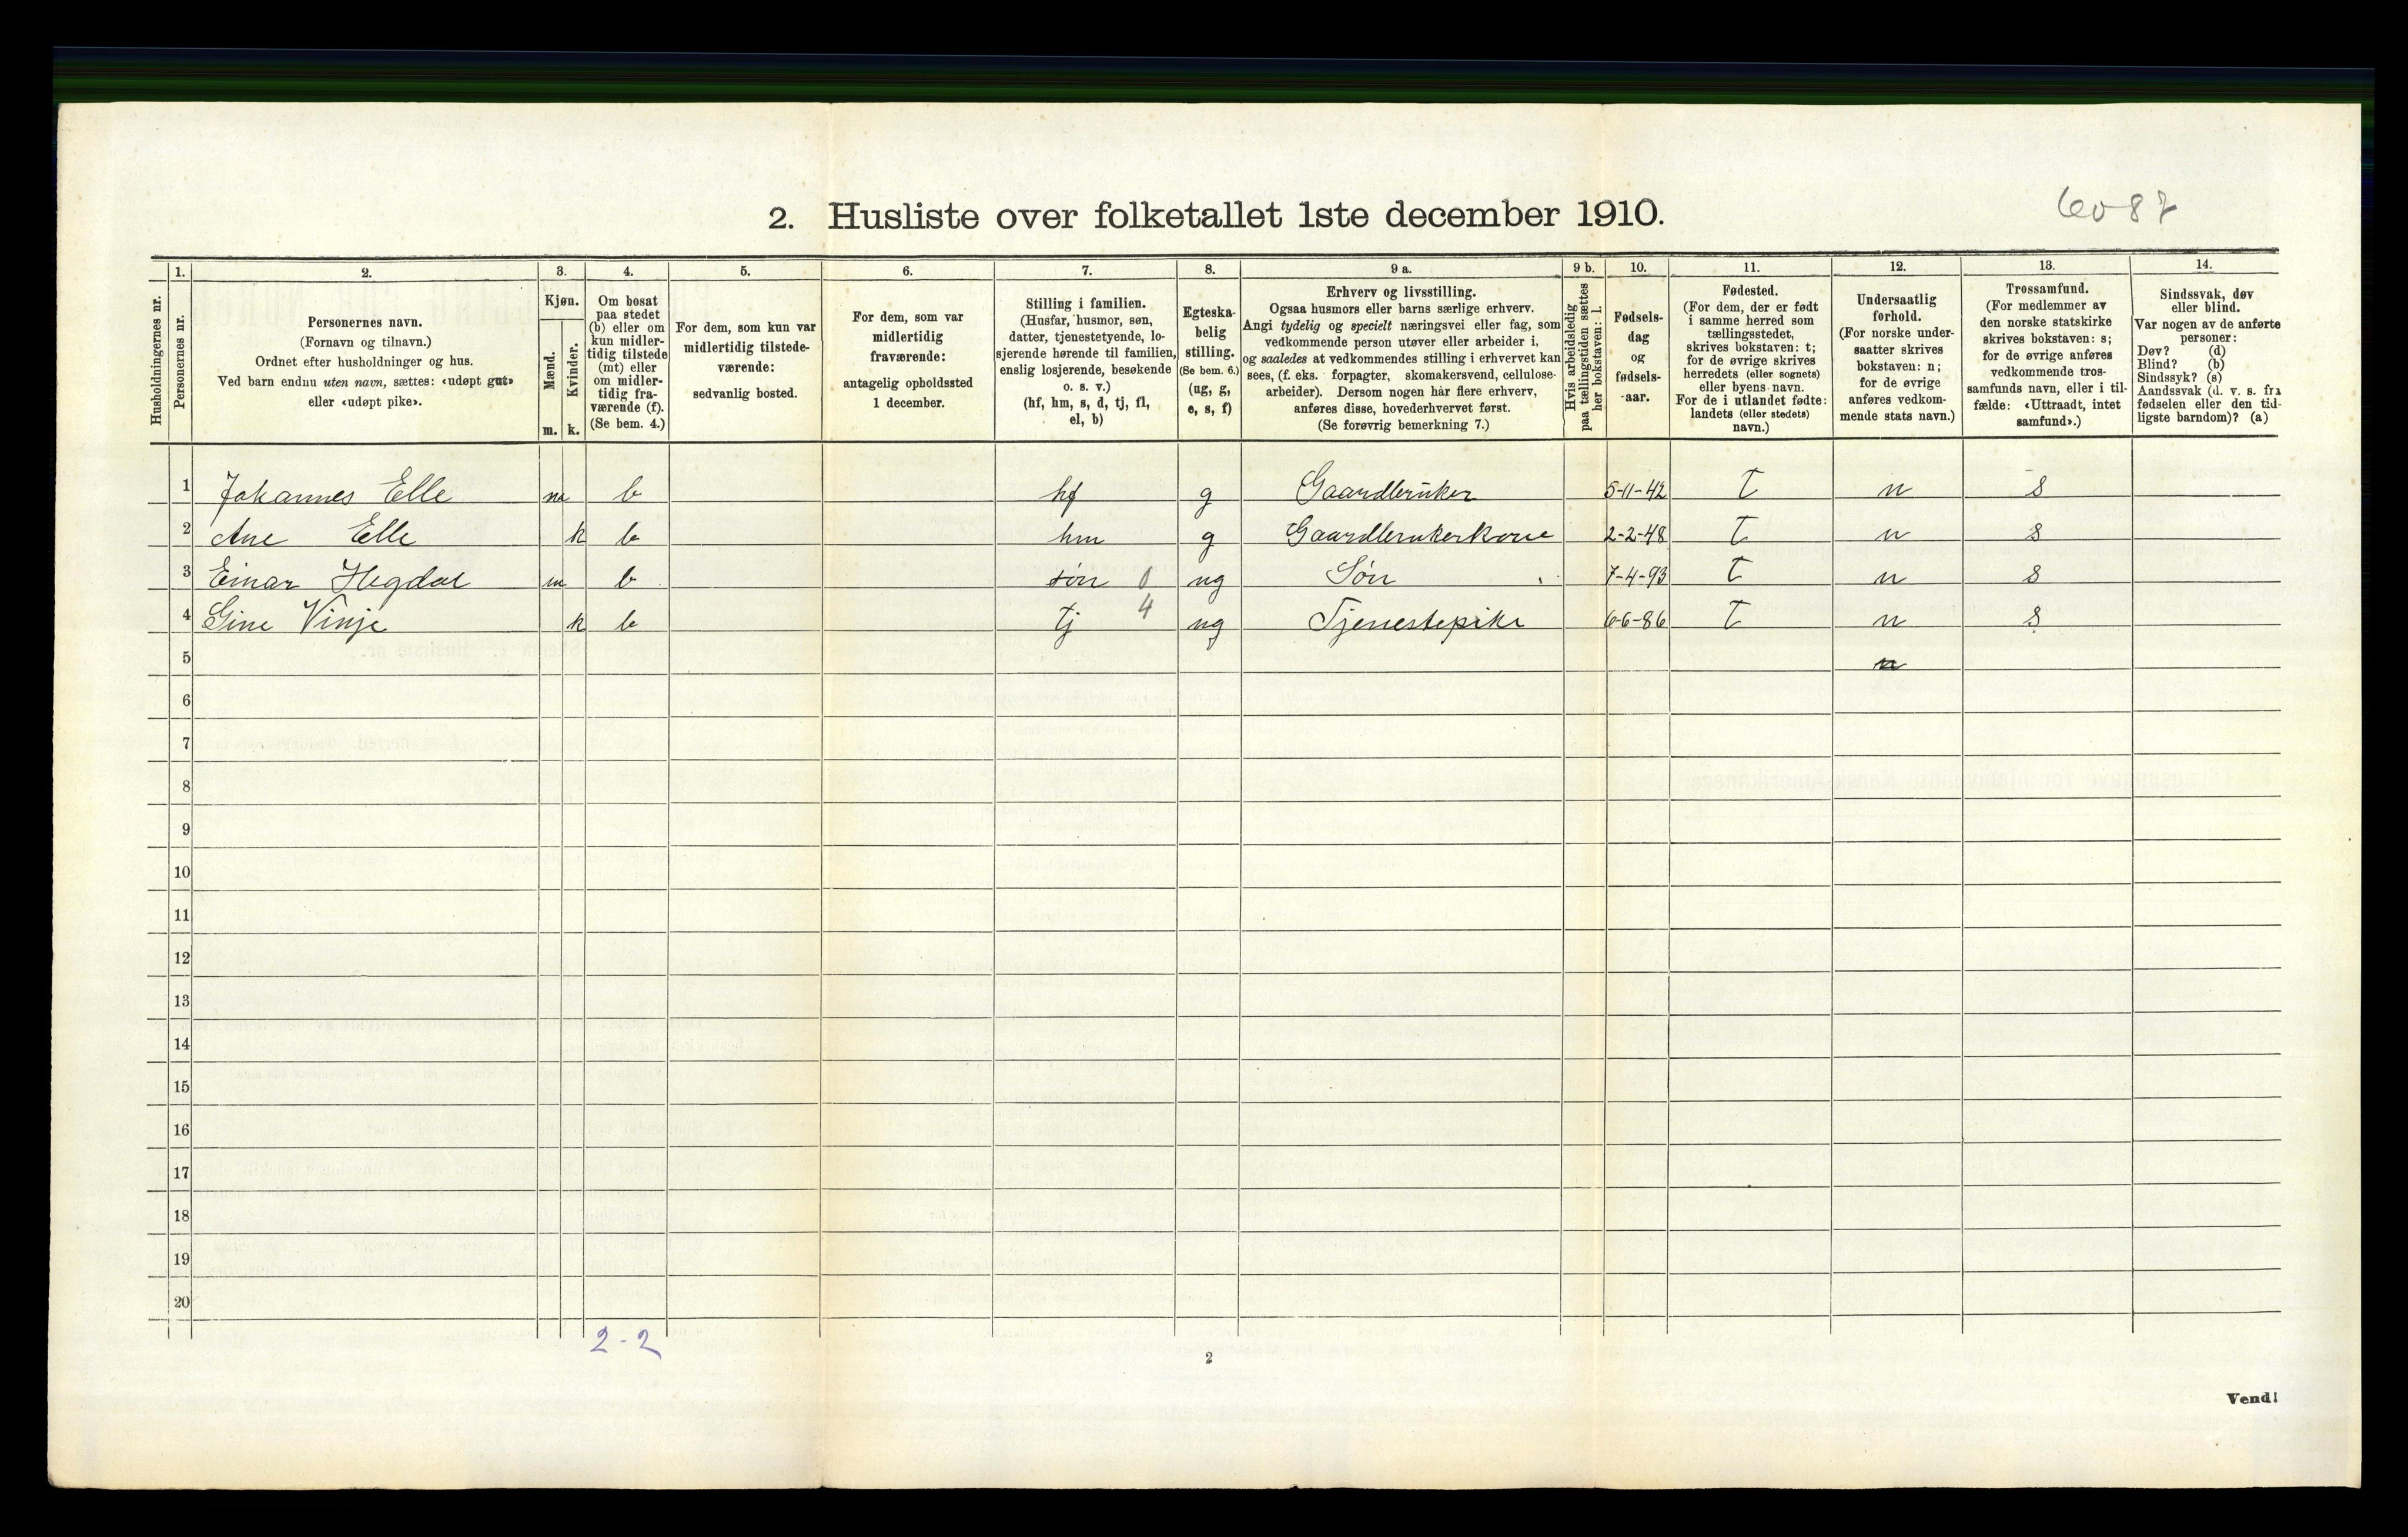 6087
2. Husliste over folketallet 1ste december 1910.
1. 2. 3. 4. 5. 6. 7. 8. 9 a. 9 b. 10. 11. 12. 13. 14.
Husholdningernes nr.
Personernes nr.
Personernes navn.
(Fornavn og tilnavn.)
Ordnet efter husholdninger og hus.
Ved barn endnu uten navn, sættes: «udøpt gut»
eller «udøpt pike».
Kjøn.
Mænd.
Kvinder.
m. k.
Om bosat
paa stedet
(b) eller om
kun midler-
tidig tilstede
(mt) eller
om midler-
tidig fra-
værende (f).
(Se bem. 4.)
For dem, som kun var
midlertidig tilstede-
værende:
sedvanlig bosted.
For dem, som var
midlertidig
fraværende:
antagelig opholdssted
1 december.
Stilling i familien.
(Husfar, husmor, søn,
datter, tjenestetyende, lo-
sjerende hørende til familien,
enslig losjerende, besøkende
o. s. v.)
(hf, hm, s, d, tj, fl,
el, b)
Egteska-
belig
stilling.
(Se bem. 6.)
(ug, g,
e, s, f)
Erhverv og livsstilling.
Ogsaa husmors eller barns særlige erhverv.
Angi tydelig og specielt næringsvei eller fag, som
vedkommende person utøver eller arbeider i,
og saaledes at vedkommendes stilling i erhvervet kan
sees, (f. eks. forpagter, skomakersvend, cellulose-
arbeider). Dersom nogen har flere erhverv,
anføres disse, hovederhvervet først.
(Se forøvrig bemerkning 7.)
Hvis arbeidsledig
paa tællingstiden sættes
her bokstaven: l.
Fødsels-
dag
og
fødsels-
aar.
Fødested.
(For dem, der er født
i samme herred som
tællingsstedet,
skrives bokstaven: t;
for de øvrige skrives
herredets (eller sognets)
eller byens navn.
For de i utlandet fødte:
landets (eller stedets)
navn.)
Undersaatlig
forhold.
(For norske under-
saatter skrives
bokstaven: n;
for de øvrige
anføres vedkom-
mende stats navn.)
Trossamfund.
(For medlemmer av
den norske statskirke
skrives bokstaven: s;
for de øvrige anføres
vedkommende tros-
samfunds navn, eller i til-
fælde: «Uttraadt, intet
samfund».)
Sindssvak, døv
eller blind.
Var nogen av de anførte
personer:
Døv? (d)
Blind? (b)
Sindssyk? (s)
Aandssvak (d. v. s. fra
fødselen eller den tid-
ligste barndom)? (a)
1 Johannes Elle m b hf g Gaardbruker 5-11-42 t n s
2 Ane Elle k b hm g Gaardbrukerkone 2-2-48 t n s
3 Einar Hegdal m b søn 0 ug Søn 7-4-93 t n s
4 Gine Vinje k b tj 4 ug Tjenestepike 6-6-86 t n s
5 n
6
7
8
9
10
11
12
13
14
15
16
17
18
19
20
2-2
2
Vend!